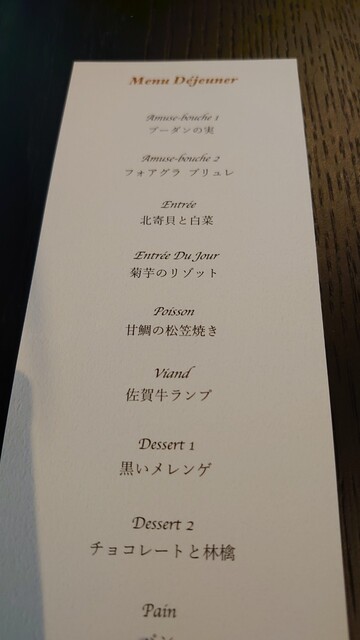 Menu Déjeuner
Amuse-bouche 1
ブーダンの実
Amuse-bouche 2
フォアグラ ブリュレ
Entrée
北寄貝と白菜
Entrée Du Jour
菊芋のリゾット
Poisson
甘鯛の松笠焼き
Viand
佐賀牛ランプ
Dessert 1
黒いメレンゲ
Dessert 2
チョコレートと林檎
Pain